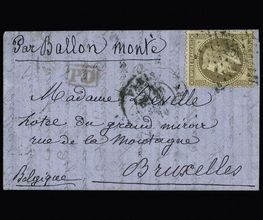 Par Ballon monté
PD
Madame Léville
hôtel du grand miroir
rue de la Montagne
Bruxelles
Belgique